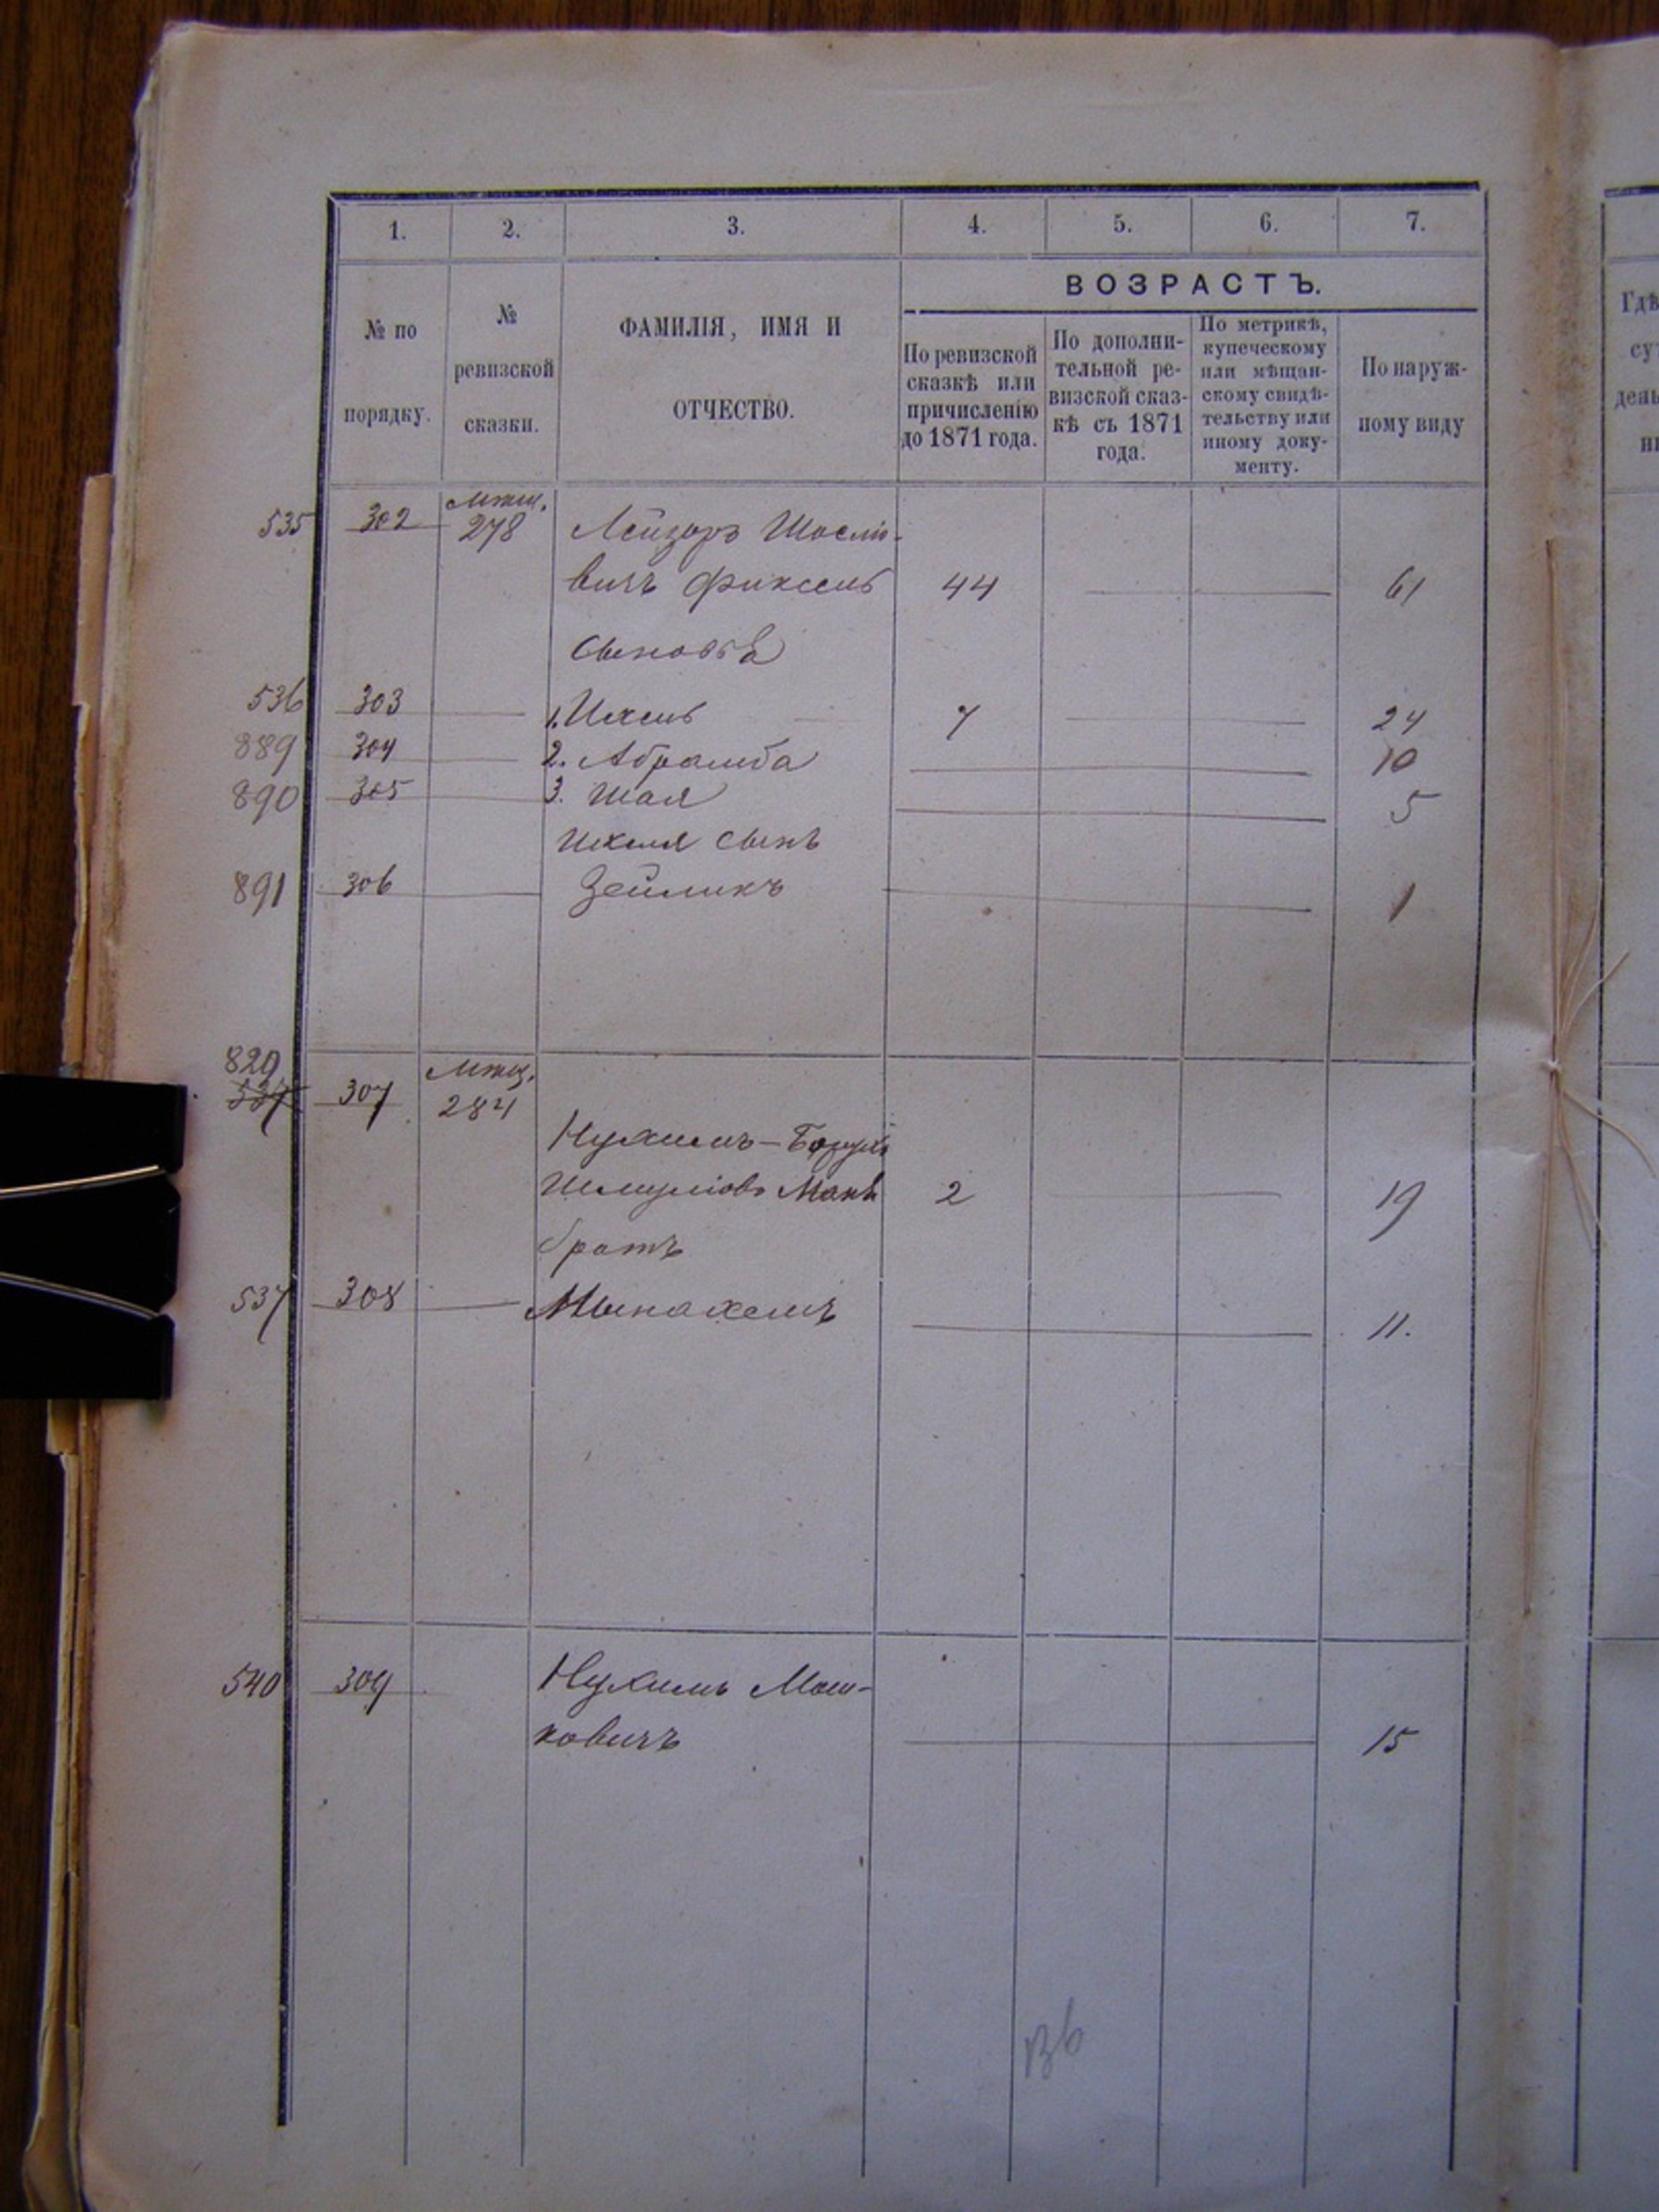 1. 2. 3. 4. 5. 6. 7.
ВОЗРАСТЪ.
№ по порядку.
№ ревизской сказки.
ФАМИЛІЯ, ИМЯ И ОТЧЕСТВО.
По ревизской сказкѣ или причисленію до 1871 года.
По дополни-тельной ре-визской сказ-кѣ съ 1871 года.
По метрикѣ, купеческому или мѣщан-скому свидѣ-тельству или иному доку-менту.
По наруж-ному виду
535 302 278 Лейзоръ Шосліо-
вичъ Фиксель 44 61
Сыновья
536 303 1. Ихель 7 24
889 304 2. Абрамба 10
890 305 3. Шая 5
Ихеля сынъ
891 306 Зейликъ 1
829
537 307 284
Нухимъ-Борухъ
Шмуліовъ 2 19
братъ
537 308 Мынахемъ 11.
540 309 Нухимъ Мош-
ковичъ 15